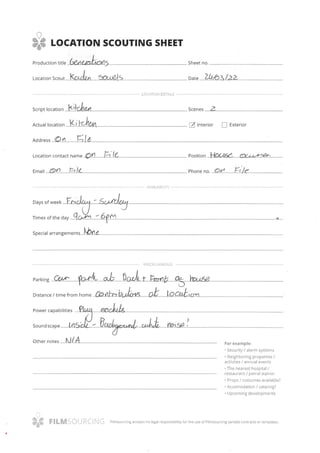 LOCATION SCOUTING SHEET
Production title Generations Sheet no.
Location Scout Kaiden Date 24/03/22
LOCATION DETAILS
Script location Kitchen Scenes 2
Actual location Kitchen ☑ Interior ☐ Exterior
Address On File
Location contact name On File Position House owner
Email On File Phone no. On File
AVAILABILITY
Days of week Friday - Sunday
Times of the day 9am - 6pm
Special arrangements None
MISCELLANEOUS
Parking Car park at Back + Front of house
Distance / time from home Contributors at location
Power capabilities Plug sockets
Soundscape inside - Background white noise!
Other notes N/A
For example:
• Security / alarm systems
• Neighboring properties / activities / annual events
• The nearest hospital / restaurant / petrol station
• Props / costumes available?
• Accomodation / catering?
• Upcoming developments
FILMSOURCING Filmsourcing accepts no legal responsibility for the use of Filmsourcing sample contracts or templates.